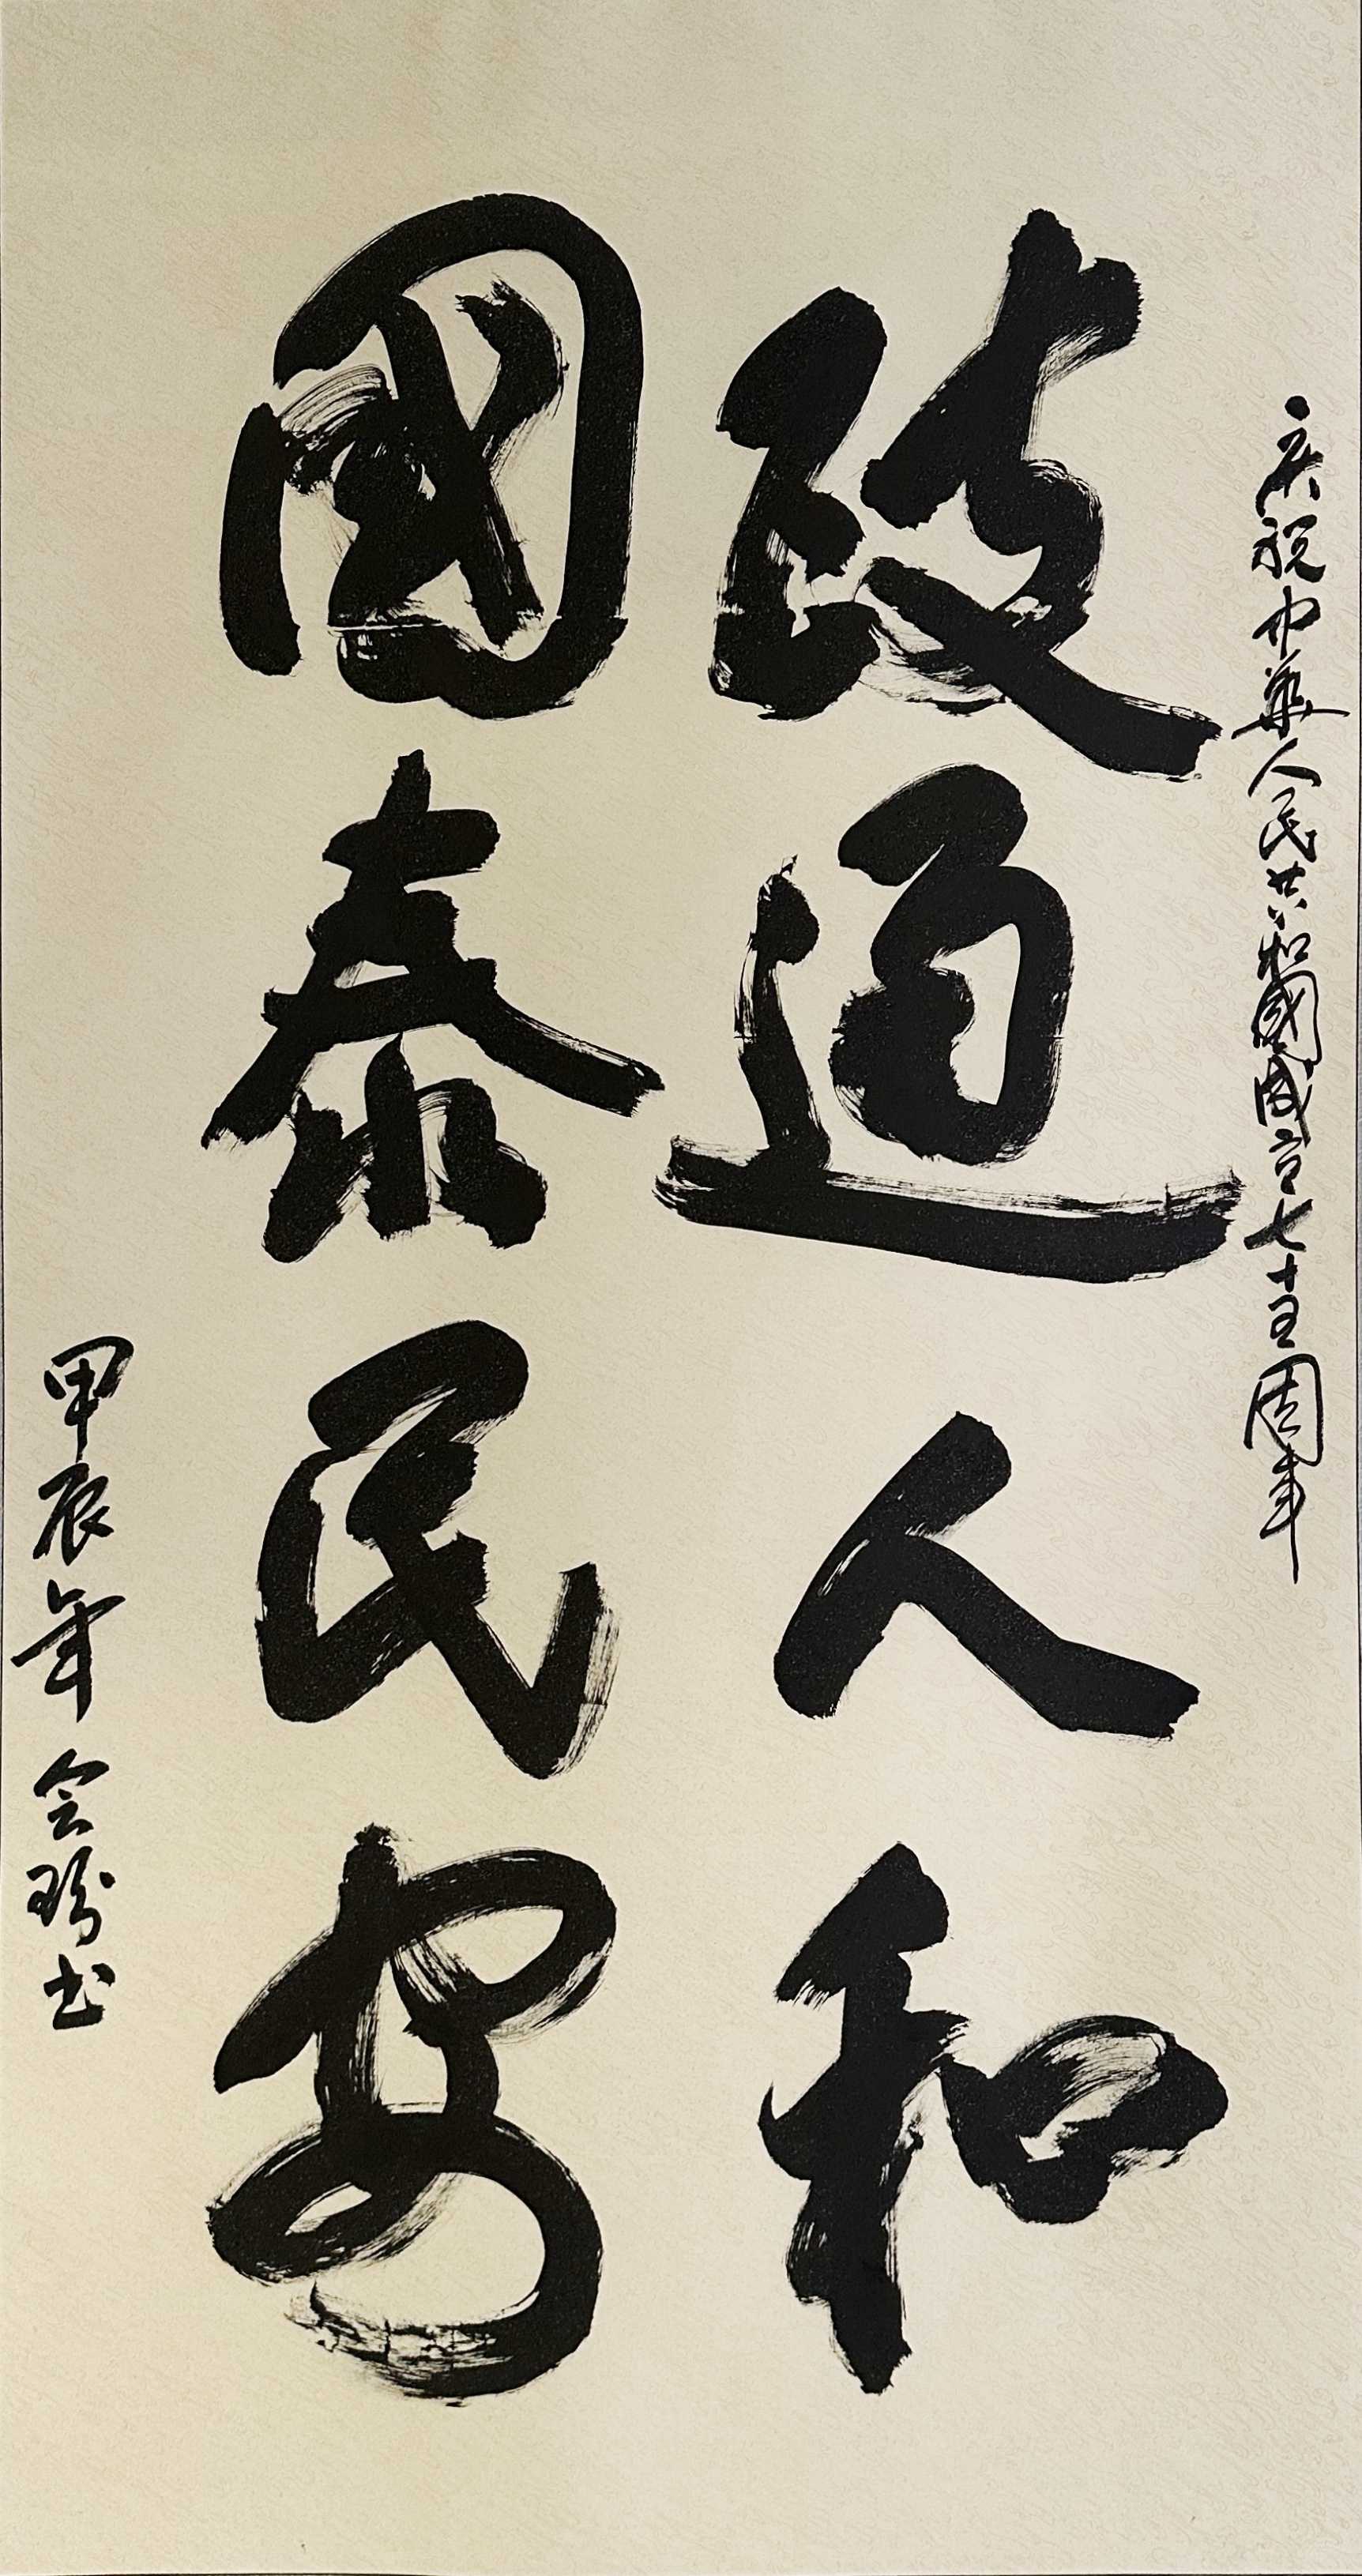 庆祝中華人民共和國成立七十五周年
政通人和
國泰民安
甲辰年 会玢书